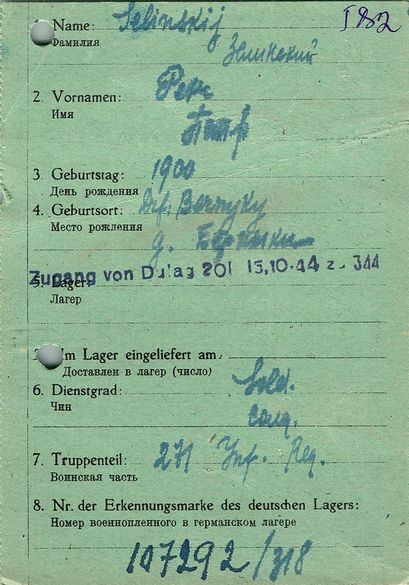 1. Name: Selinskij 1982
Фамилия Зелинский
2. Vornamen: Petr
Имя Петр
3. Geburtstag: 1900
День рождения
4. Geburtsort: Drf.
Место рожления д.
Zugang von Dulag 201 15.10.44 zu 344
5. Lager:
Лагер
Im Lager eingeliefert am:
Доставлен в лагер (число)
6. Dienstgrad: Sold.
Чин солд.
7. Truppenteil: 271 Inf. Reg.
Воинская часть
8. Nr. der Erkennungsmarke des deutschen Lagers:
Номер военнопленного в германском лагере
107292/318